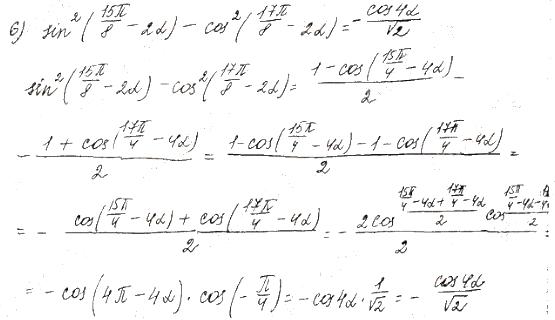 б) sin²(15π/8 − 2α) − cos²(17π/8 − 2α) = − cos4α/√2
sin²(15π/8 − 2α) − cos²(17π/8 − 2α) = (1 − cos(15π/4 − 4α))/2 −
− (1 + cos(17π/4 − 4α))/2 = (1 − cos(15π/4 − 4α) − 1 − cos(17π/4 − 4α))/2 =
= − (cos(15π/4 − 4α) + cos(17π/4 − 4α))/2 = − (2cos (15π/4 − 4α + 17π/4 − 4α)/2 cos (15π/4 − 4α −)/2)/2 =
= − cos(4π − 4α) · cos(− π/4) = − cos4α · 1/√2 = − cos4α/√2